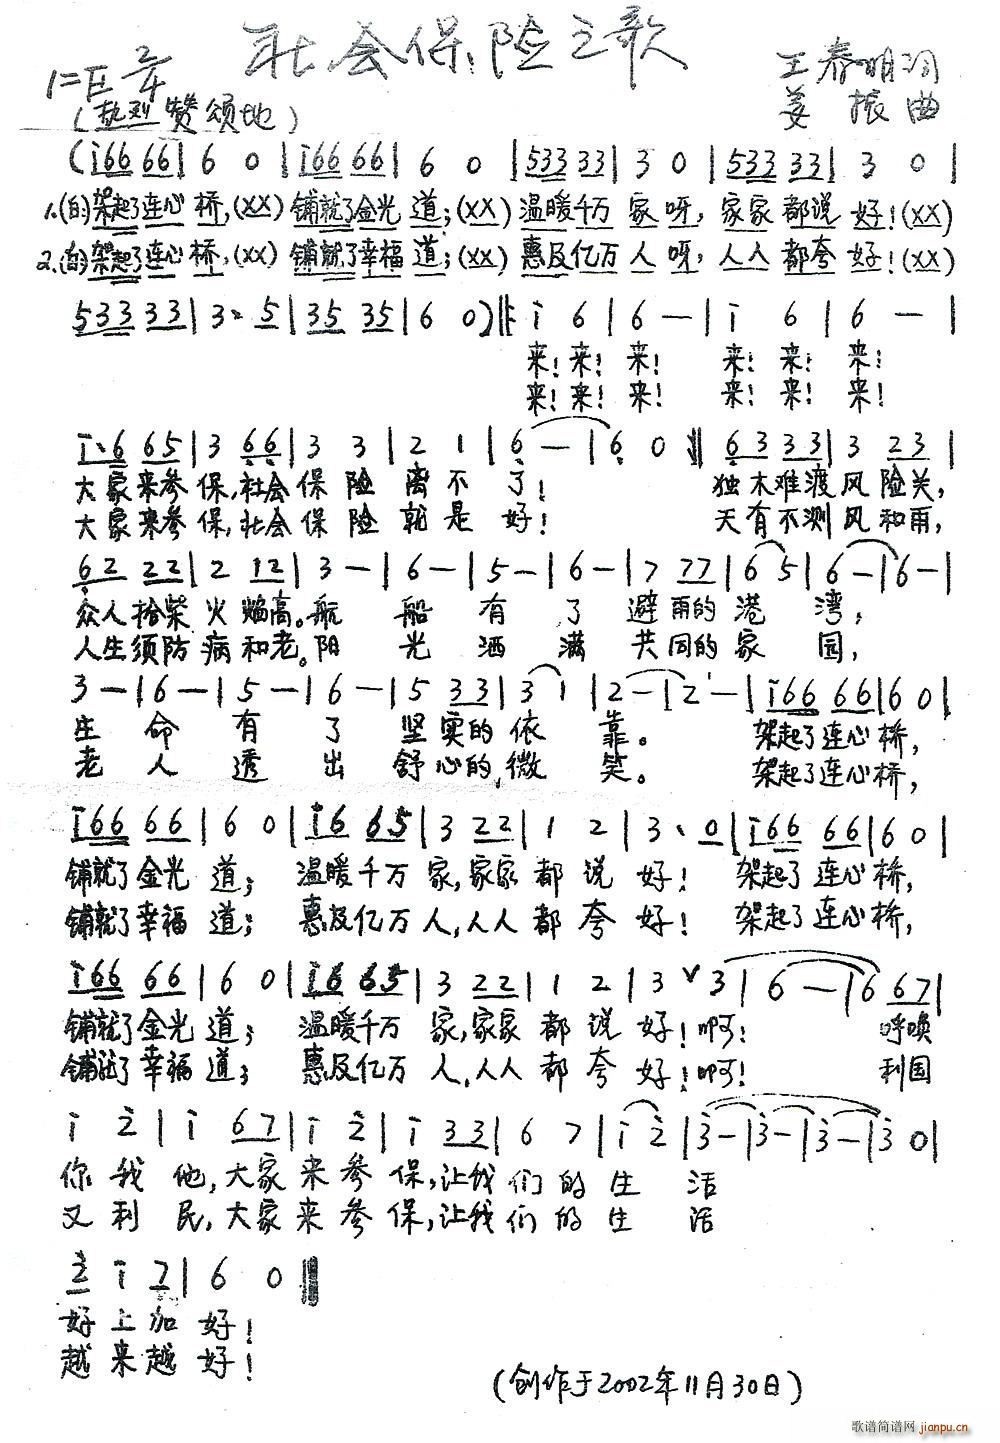 社会保险之歌
1=E 2/4
王春明词
(热烈 赞颂地)
姜 振 曲
(i66 66|6 0|i66 66|6 0|533 33|3 0|533 33|3 0|
1.(白)架起了连心桥,(XX)铺就了金光道;(XX)温暖千万家呀,家家都说好!(XX)
2.(白)架起了连心桥,(XX)铺就了幸福道;(XX)惠及亿万人呀,人人都夸好!(XX)
533 33|3· 5|35 35|6 0)‖: i 6|6 —|i 6|6 —|
来!来!来! 来!来!来!
来!来!来! 来!来!来!
i·6 65|3 66|3 3|2 1|6 —|6 0 ‖ 6333|3 23|
大家来参保,社会保险离不了! 独木难渡风险关,
大家来参保,社会保险就是好! 天有不测风和雨,
62 22|2 12|3 —|6 —|5 —|6 —|7 77|6 5|6 —|6 —|
众人拾柴火焰高。航船有了避雨的港湾,
人生须防病和老。阳光洒满共同的家园,
3 —|6 —|5 —|6 —|5 33|3 1|2 —|2 —|i66 66|6 0|
生命有了坚实的依靠。 架起了连心桥,
老人透出舒心的微笑。 架起了连心桥,
i66 66|6 0|i6 65|3 22|1 2|3· 0|i66 66|6 0|
铺就了金光道; 温暖千万家,家家都说好! 架起了连心桥,
铺就了幸福道; 惠及亿万人,人人都夸好! 架起了连心桥,
i66 66|6 0|i6 65|3 22|1 2|3 ∨ 3|6 —|6 67|
铺就了金光道; 温暖千万家,家家都说好!啊! 呼唤
铺就了幸福道; 惠及亿万人,人人都夸好!啊! 利国
i 2|i 67|i 2|i 33|6 7|i 2|3 —|3 —|3 —|3 0|
你我他,大家来参保,让我们的生活
又利民,大家来参保,让我们的生活
2 i 7|6 0‖
好上加好!
越来越好!
(创作于2002年11月30日)
歌谱简谱网 jianpu.cn